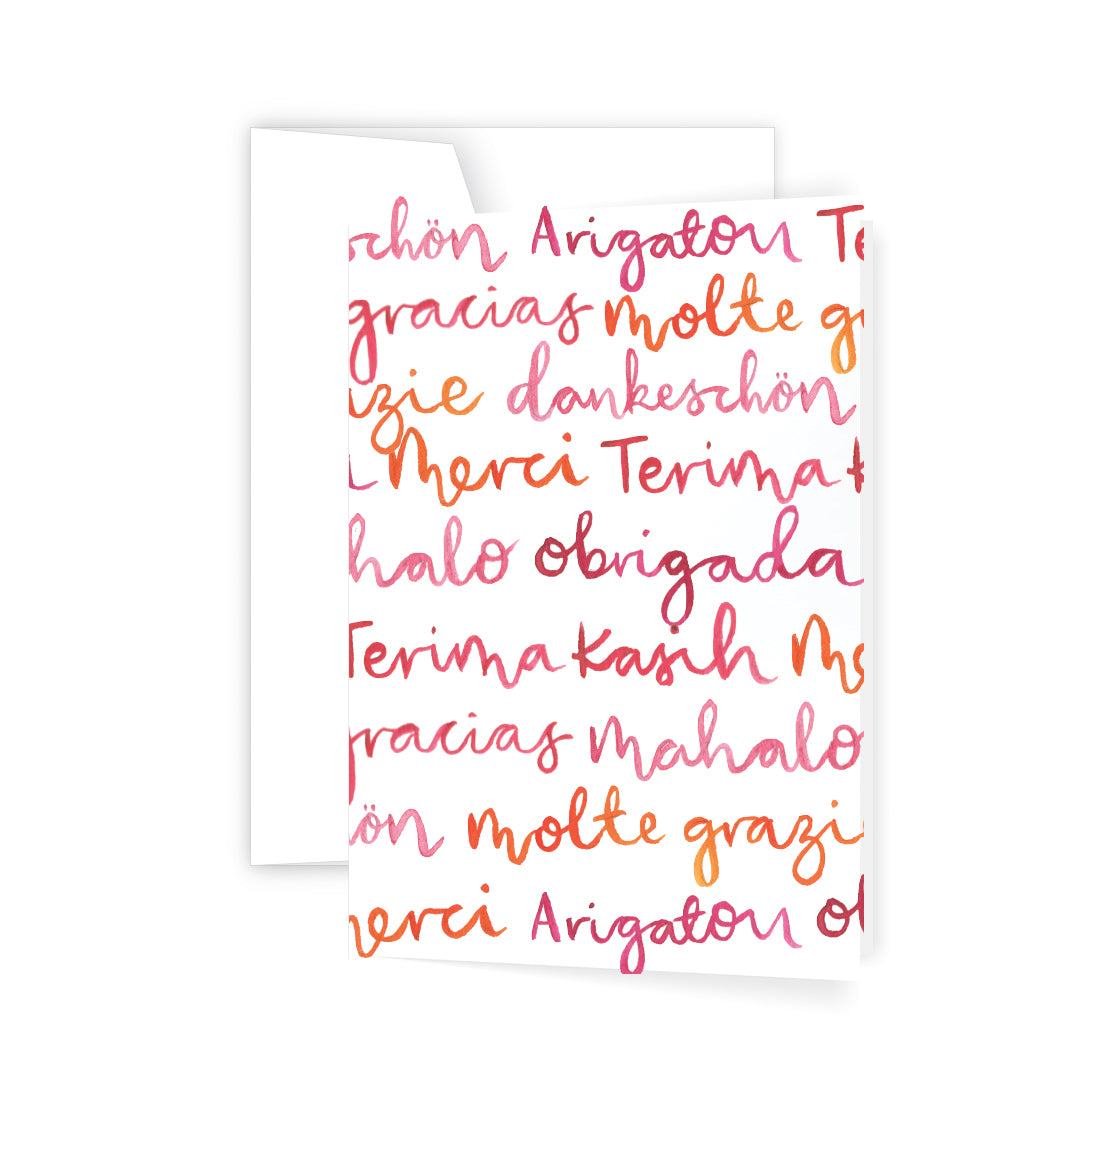 schön Arigatou Te
gracias molte gr
zie dankeschön
Merci Terima K
halo obrigada
Terima Kasih Me
gracias mahalo
ön molte grazi
merci Arigatou ob